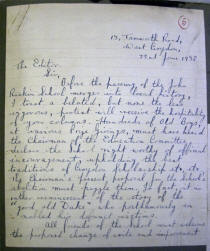 6
13, Tamworth Road,
West Croydon,
22nd June 1938
The Editor.
Sir,
Before the passing of the John
Ruskin School merges into local history,
I trust a belated, but none the less
vigorous, protest will receive the hospitality
of your columns. Hundreds of Old Boys,
at various Prize givings, must have heard
the Chairman of the Education Committee
declare the School right worthy of official
encouragement, upholding the best
traditions of Croydon scholarship etc. etc.
The Chairman's present proposal for the School's
abolition must puzzle them. In fact, it is
rather reminiscent of the story of the
"good old Duke" who
his
victims.
All friends of the School must welcome
the proposed change of site and improvement